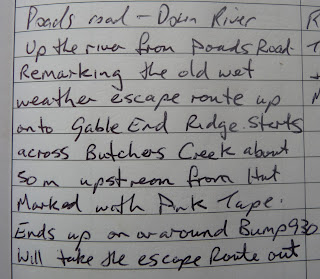 Poads road - Down River
Up the river from Poads Road.
Remarking the old wet
weather escape route up
onto Gable End Ridge. Starts
across Butchers Creek about
50 m upstream from Hut
Marked with Pink Tape.
Ends up on or around Bump 930
Will take the escape Route out